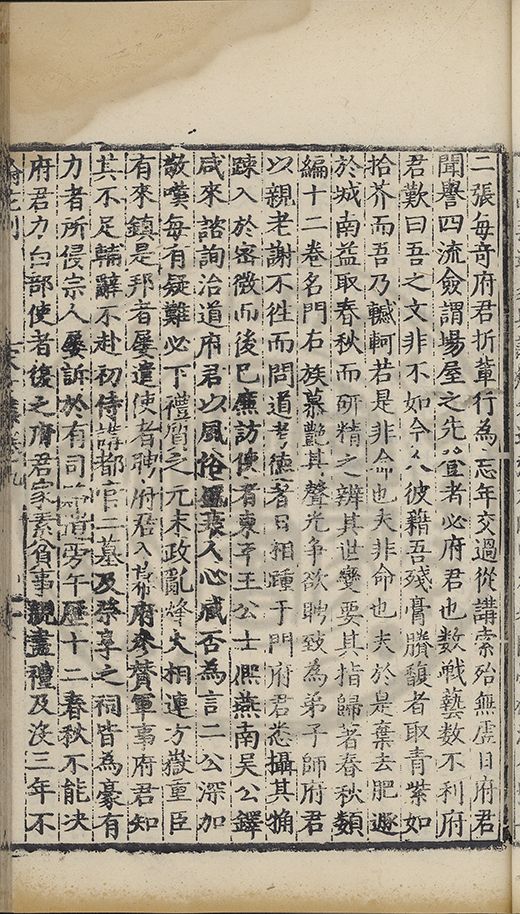 二張每奇府君折輩行為忘年交過從講索殆無虛日府君
聞譽四流僉謂場屋之先登者必府君也數戰藝數不利府
君歎曰吾之文非不如今人彼藉吾殘膏賸馥者取青紫如
拾芥而吾乃轗軻若是非命也夫非命也夫於是棄去肥遯
於城南益取春秋而研精之辨其世變要其指歸著春秋類
編十二卷名門右族慕艷其聲光爭欲聘致為弟子師府君
以親老謝不徃而問道考德者日相踵于門府君悉攝其觕
踈入於密微而後已廉訪使者東平王公士熈燕南吳公鐸
咸來諮詢治道府君以風俗盛衰人心臧否為言二公深加
敬嘆每有疑難必下禮質之元末政亂烽火相連方嶽重臣
有來鎮是邦者屢遣使者聘府君入幕府參贊軍事府君知
其不足輔辭不赴初侍講都官二墓及祭享之祠皆為豪有
力者所侵宗人屢訴於有司道旁午歷十二春秋不能决
府君力白部使者後之府君家素貧事親盡禮及没三年不